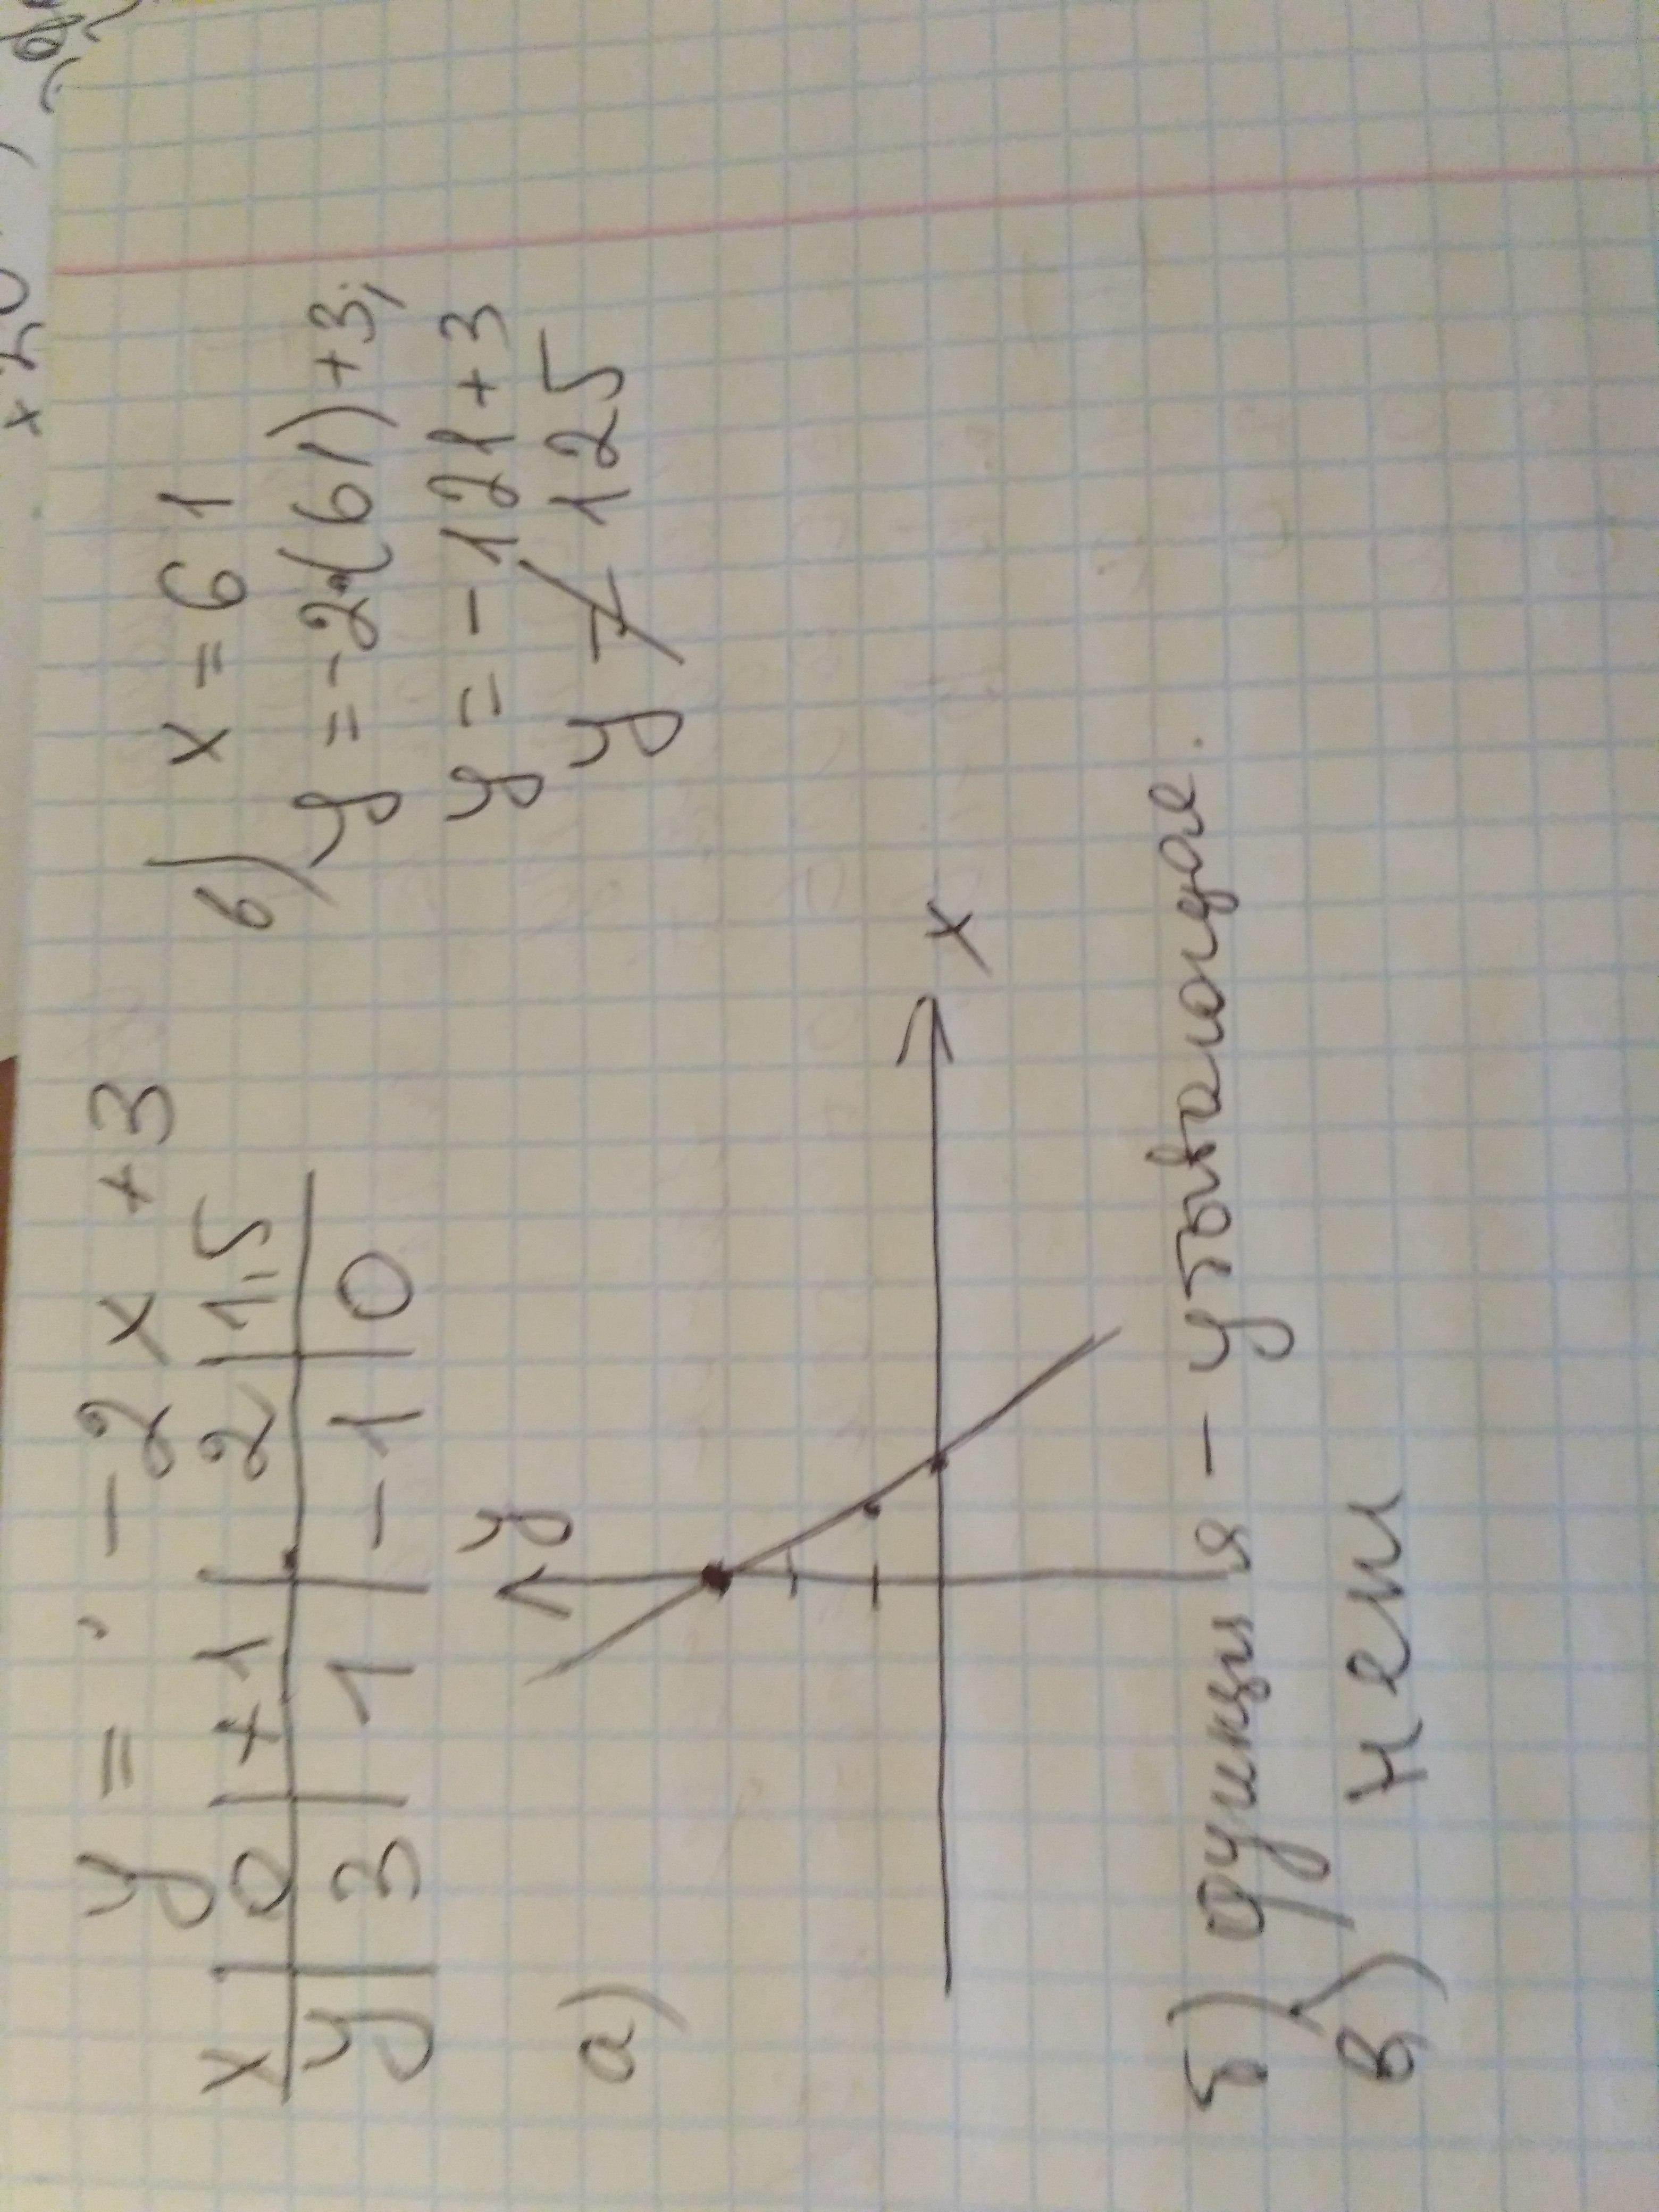 y = -2x +3
x | 0 | +1 | 2 | 1,5
y | 3 | 1 | -1 | 0
в) x = 61
y = -2·(61) +3;
y = -121+3
y ≠ 125
а)
y
x
б) функция - убывающая.
в) нет